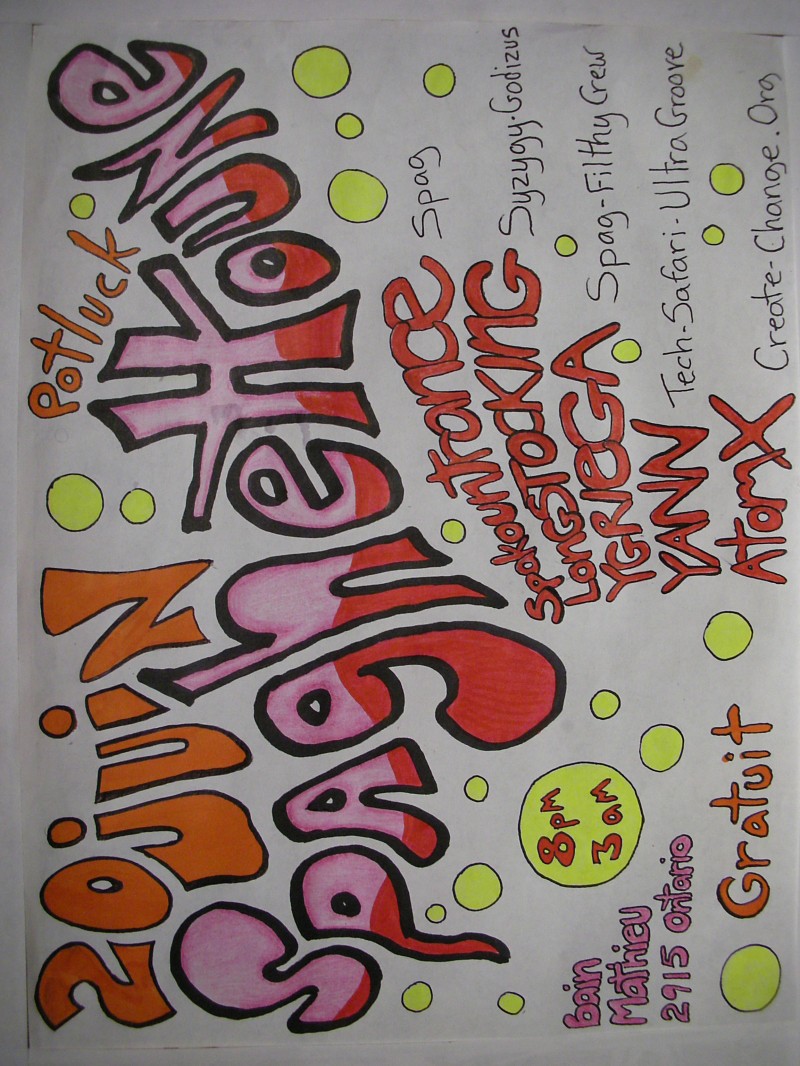 20 juin Potluck
SPAghettoume
Spakountrance Spag
LongSTOCKING Syzygy-Godizus
YGRIEGA Spag-Filthy Crew
YANN Tech-Safari-UltraGroove
AtomX Create-Change.Org
8pm
3am
Bain
Mathieu
2915 Ontario
Gratuit